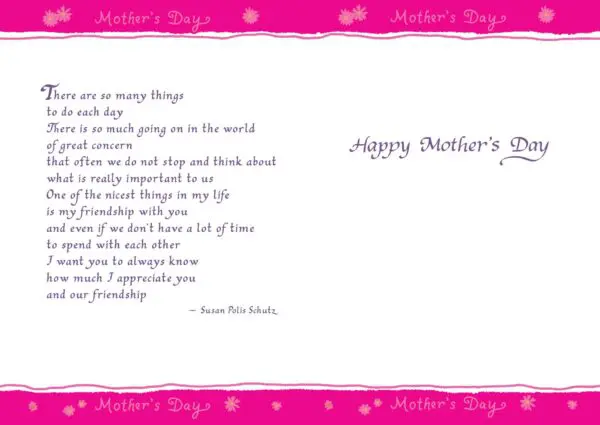 Mother's Day
Mother's Day
There are so many things
to do each day
There is so much going on in the world
of great concern
that often we do not stop and think about
what is really important to us
One of the nicest things in my life
is my friendship with you
and even if we don't have a lot of time
to spend with each other
I want you to always know
how much I appreciate you
and our friendship
— Susan Polis Schutz
Happy Mother's Day
Mother's Day
Mother's Day